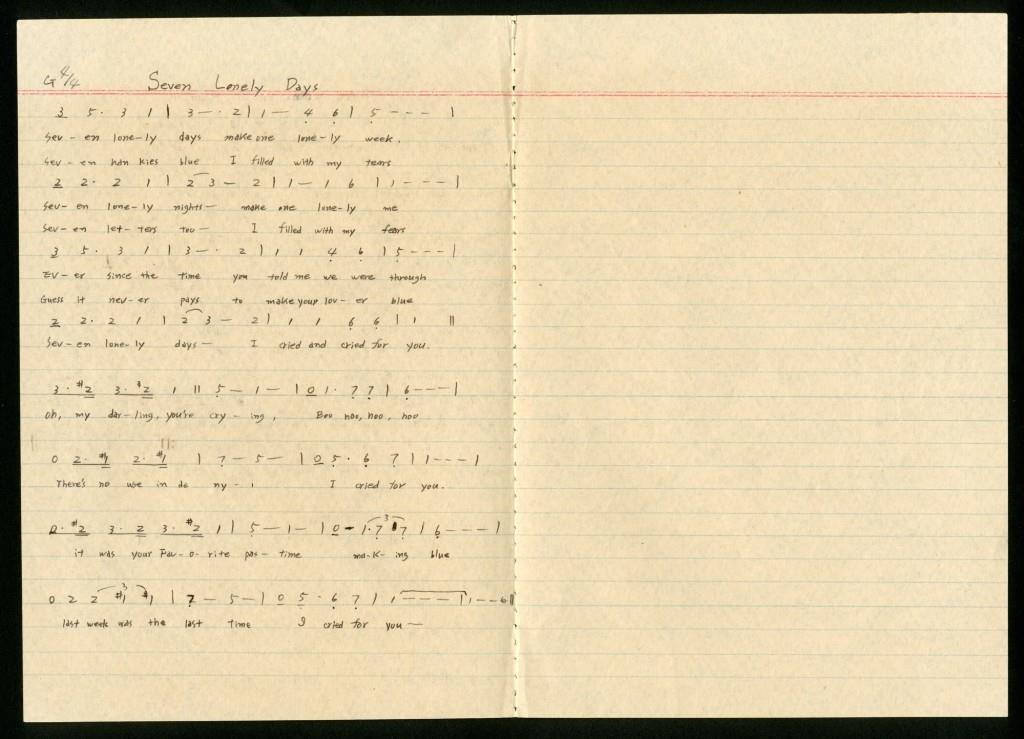 G 4/4 Seven Lonely Days
3 5. 3 1 | 3 — . 2 | 1 — 4 6 | 5 - - - |
Sev - en lone - ly days make one lone - ly week.
Sev - en han kies blue I filled with my tears
2 2. 2 1 | 2 3 — 2 | 1 — 1 6 | 1 - - - |
Sev - en lone - ly nights — make one lone - ly me
Sev - en let - ters too — I filled with my fears
3 5. 3 1 | 3 — . 2 | 1 1 4 6 | 5 - - - |
Ev - er since the time you told me we were through
Guess it nev - er pays to make your lov - er blue
2 2. 2 1 | 2 3 — 2 | 1 1 6 6 | 1 1 ||
Sev - en lone - ly days — I cried and cried for you.
3. #2 3. #2 1 || 5 — 1 — | 0 1. 7 7 | 6 - - - |
Oh, my dar - ling, you're cry - ing, Boo hoo, hoo, hoo
0 2. #1 2. #1 | 7 — 5 — | 0 5. 6 7 | 1 - - - |
There's no use in de ny - i I cried for you.
0. #2 3. 2 3. #2 1 | 5 — 1 — | 0 - 1. 7 3 7 | 6 - - - - |
it was your Fav - o - rite pas - time ma - k - ing blue
0 2 2 #1 3 #1 | 7 — 5 — | 0 5. 6 7 | 1 - - - - | 1 - - 0 ||
last week was the last time I cried for you —